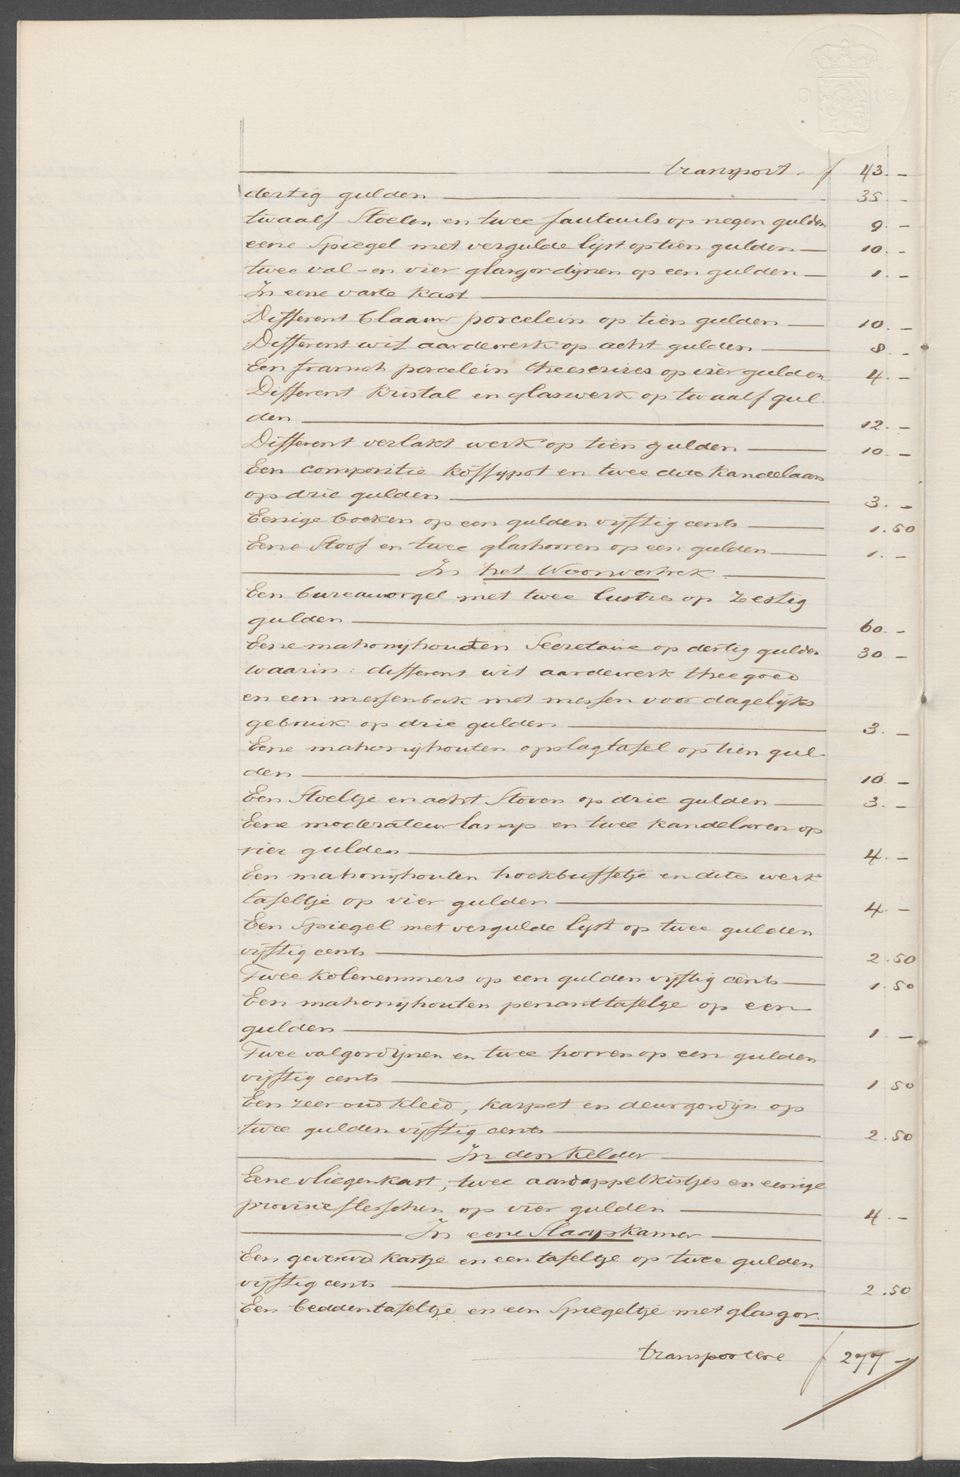 transport f 43.-
dertig gulden 35.-
twaalf Stoelen en twee fauteuils op negen gulden 9.-
eene Spiegel met vergulde lijst op tien gulden 10.-
twee val- en vier glasgordijnen op een gulden 1.-
In eene vaste kast
Different blaauw porcelein op tien gulden 10.-
Different wit aardewerk op acht gulden 8.-
Een fransch porcelein theeservies op vier gulden 4.-
Different kristal en glaswerk op twaalf gul-
den 12.-
Different verlakt werk op tien gulden 10.-
Een compositie koffijpot en twee dito kandelaars
op drie gulden 3.-
Eenige boeken op een gulden vijftig cents 1.50
Eene Stoof en twee glashorren op een gulden 1.-
In het Woonvertrek
Een bureauorgel met twee lustres op zestig
gulden 60.-
Eene mahonijhouten Secretaire op dertig gulden 30-
waarin: different wit aardewerk theegoed
en een messenbak met messen voor dagelijks
gebruik op drie gulden 3.-
Eene mahonijhouten opslagtafel op tien gul-
den 10-
Een Stoeltje en acht Stoven op drie gulden 3.-
Eene moderateur lamp en twee kandelaren op
vier gulden 4.-
Een mahonijhouten hoekbuffetje en dito werk
tafeltje op vier gulden 4-
Een Spiegel met vergulde lijst op twee gulden
vijftig cents 2.50
Twee kolenemmers op een gulden vijftig cents 1.50
Een mahonijhouten penanttafeltje op een
gulden 1-
Twee valgordijnen en twee horren op een gulden
vijftig cents 1.50
Een zeer oud kleed, karpet en deurgordijn op
twee gulden vijftig cents 2.50
In den Kelder
Eene vliegenkast, twee aardappelkistjes en eenige
provisieflesschen op vier gulden 4.-
In eene Slaapkamer
Een geverwd kastje en een tafeltje op twee gulden
vijftig cents 2.50
Een beddentafeltje en een Spiegeltje met glasgor-
transportere f 277-